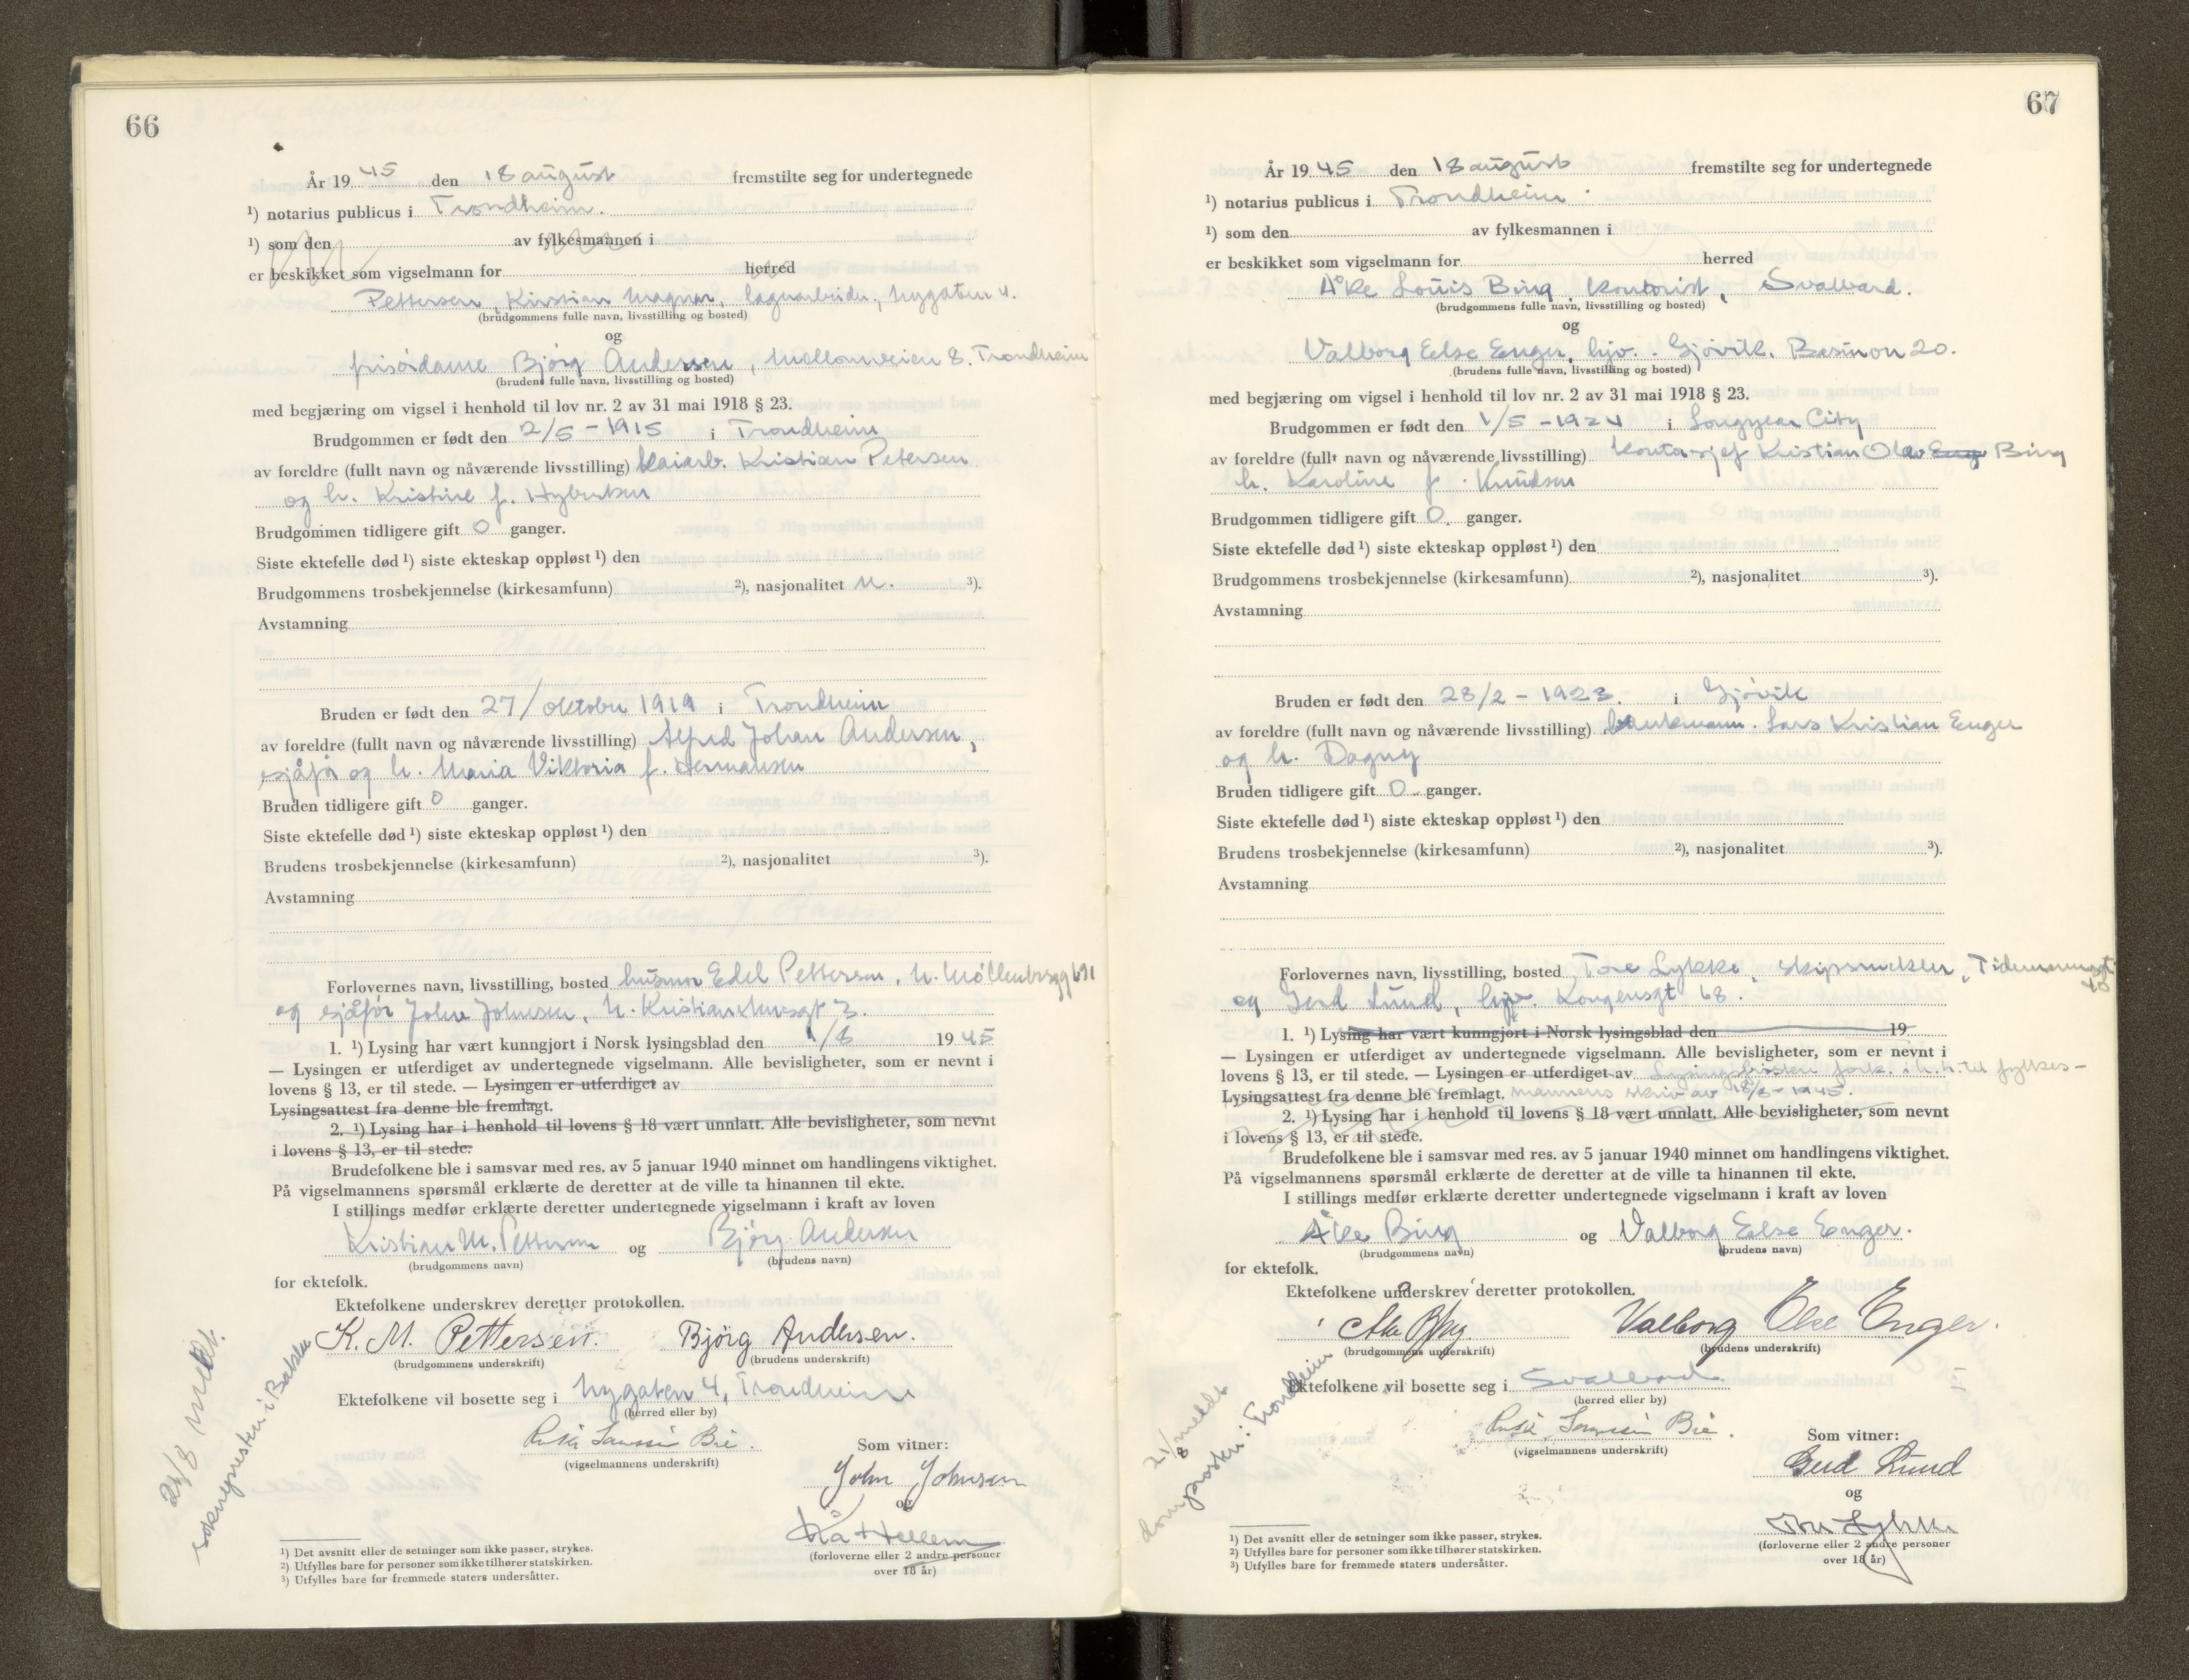 66
År 1945 den 18 august fremstilte seg for undertegnede
¹) notarius publicus i Trondheim.
¹) som den av fylkesmannen i
er beskikket som vigselmann for herred
Pettersen, Kristian Magnar, lagerarbeider, Nygaten 4.
(brudgommens fulle navn, livsstilling og bosted)
og
frisördame Bjørg Andersen, Mellomveien 8. Trondheim
(brudens fulle navn, livsstilling og bosted)
med begjæring om vigsel i henhold til lov nr. 2 av 31 mai 1918 § 23.
Brudgommen er født den 2/5 - 1915 i Trondheim
av foreldre (fullt navn og nåværende livsstilling) kaiarb. Kristian Petersen
og h. Kristine f. Hybertsen
Brudgommen tidligere gift 0 ganger.
Siste ektefelle død ¹) siste ekteskap oppløst ¹) den
Brudgommens trosbekjennelse (kirkesamfunn) ²), nasjonalitet n. ³).
Avstamning
Bruden er født den 27/oktober 1919 i Trondheim
av foreldre (fullt navn og nåværende livsstilling) Alfred Johan Andersen,
sjåfør og h. Maria Viktoria f. Hermansen
Bruden tidligere gift 0 ganger.
Siste ektefelle død ¹) siste ekteskap oppløst ¹) den
Brudens trosbekjennelse (kirkesamfunn) ²), nasjonalitet ³).
Avstamning
Forlovernes navn, livsstilling, bosted husmor Edel Pettersen, N. Möllenbergg
og sjåför John Johnsen, N.
1. ¹) Lysing har vært kunngjort i Norsk lysingsblad den 1/8 1945
— Lysingen er utferdiget av undertegnede vigselmann. Alle bevisligheter, som er nevnt i
lovens § 13, er til stede. — Lysingen er utferdiget av
Lysingsattest fra denne ble fremlagt.
2. ¹) Lysing har i henhold til lovens § 18 vært unnlatt. Alle bevisligheter, som nevnt
i lovens § 13, er til stede.
Brudefolkene ble i samsvar med res. av 5 januar 1940 minnet om handlingens viktighet.
På vigselmannens spørsmål erklærte de deretter at de ville ta hinannen til ekte.
I stillings medfør erklærte deretter undertegnede vigselmann i kraft av loven
Kristian M. Pettersen og Bjørg Andersen
(brudgommens navn) (brudens navn)
for ektefolk.
Ektefolkene underskrev deretter protokollen.
K. M. Pettersen. Bjørg Andersen.
(brudgommens underskrift) (brudens underskrift)
Ektefolkene vil bosette seg i Nygaten 4, Trondheim
(herred eller by)
(vigselmannens underskrift)
Som vitner:
John Johnsen
og
Hellem
(forloverne eller 2 andre personer
over 18 år)
21/8 meldt.
soknepresten i Bakke
¹) Det avsnitt eller de setninger som ikke passer, strykes.
²) Utfylles bare for personer som ikke tilhører statskirken.
³) Utfylles bare for fremmede staters undersåtter.
67
År 1945 den 18 august fremstilte seg for undertegnede
¹) notarius publicus i Trondheim
¹) som den av fylkesmannen i
er beskikket som vigselmann for herred
Åke Louis Bing, kontorist, Svalbard.
(brudgommens fulle navn, livsstilling og bosted)
og
Valborg Else Enger, hjv. Gjövik. 20.
(brudens fulle navn, livsstilling og bosted)
med begjæring om vigsel i henhold til lov nr. 2 av 31 mai 1918 § 23.
Brudgommen er født den 1/5 - 1924 i Longyear City
av foreldre (fullt navn og nåværende livsstilling) kontorsjef Kristian Olav Bing
h. Karoline f. Knudsen
Brudgommen tidligere gift 0. ganger.
Siste ektefelle død ¹) siste ekteskap oppløst ¹) den
Brudgommens trosbekjennelse (kirkesamfunn) ²), nasjonalitet ³).
Avstamning
Bruden er født den 28/2 - 1923. i Gjövik
av foreldre (fullt navn og nåværende livsstilling) Lars Kristian Enger
og h. Dagny
Bruden tidligere gift 0. ganger.
Siste ektefelle død ¹) siste ekteskap oppløst ¹) den
Brudens trosbekjennelse (kirkesamfunn) ²), nasjonalitet ³).
Avstamning
Forlovernes navn, livsstilling, bosted Tore Lykke, skipsmekler,
og Gerd Lund, hjv. Kongensgt 68.
1. ¹) Lysing har vært kunngjort i Norsk lysingsblad den 19
— Lysingen er utferdiget av undertegnede vigselmann. Alle bevisligheter, som er nevnt i
lovens § 13, er til stede. — Lysingen er utferdiget av Lysingsfristen fork. i h.h. til fylkes-
Lysingsattest fra denne ble fremlagt. mannens skriv av 18/8 - 1945.
2. ¹) Lysing har i henhold til lovens § 18 vært unnlatt. Alle bevisligheter, som nevnt
i lovens § 13, er til stede.
Brudefolkene ble i samsvar med res. av 5 januar 1940 minnet om handlingens viktighet.
På vigselmannens spørsmål erklærte de deretter at de ville ta hinannen til ekte.
I stillings medfør erklærte deretter undertegnede vigselmann i kraft av loven
Åke Bing og Valborg Else Enger.
(brudgommens navn) (brudens navn)
for ektefolk.
Ektefolkene underskrev deretter protokollen.
Åke Bing Valborg Else Enger.
(brudgommens underskrift) (brudens underskrift)
Ektefolkene vil bosette seg i Svalbard
(herred eller by)
(vigselmannens underskrift)
Som vitner:
Gerd Lund
og
Tore Lykke
(forloverne eller 2 andre personer
over 18 år)
21/8 meldt
domprosten i Trondheim
¹) Det avsnitt eller de setninger som ikke passer, strykes.
²) Utfylles bare for personer som ikke tilhører statskirken.
³) Utfylles bare for fremmede staters undersåtter.